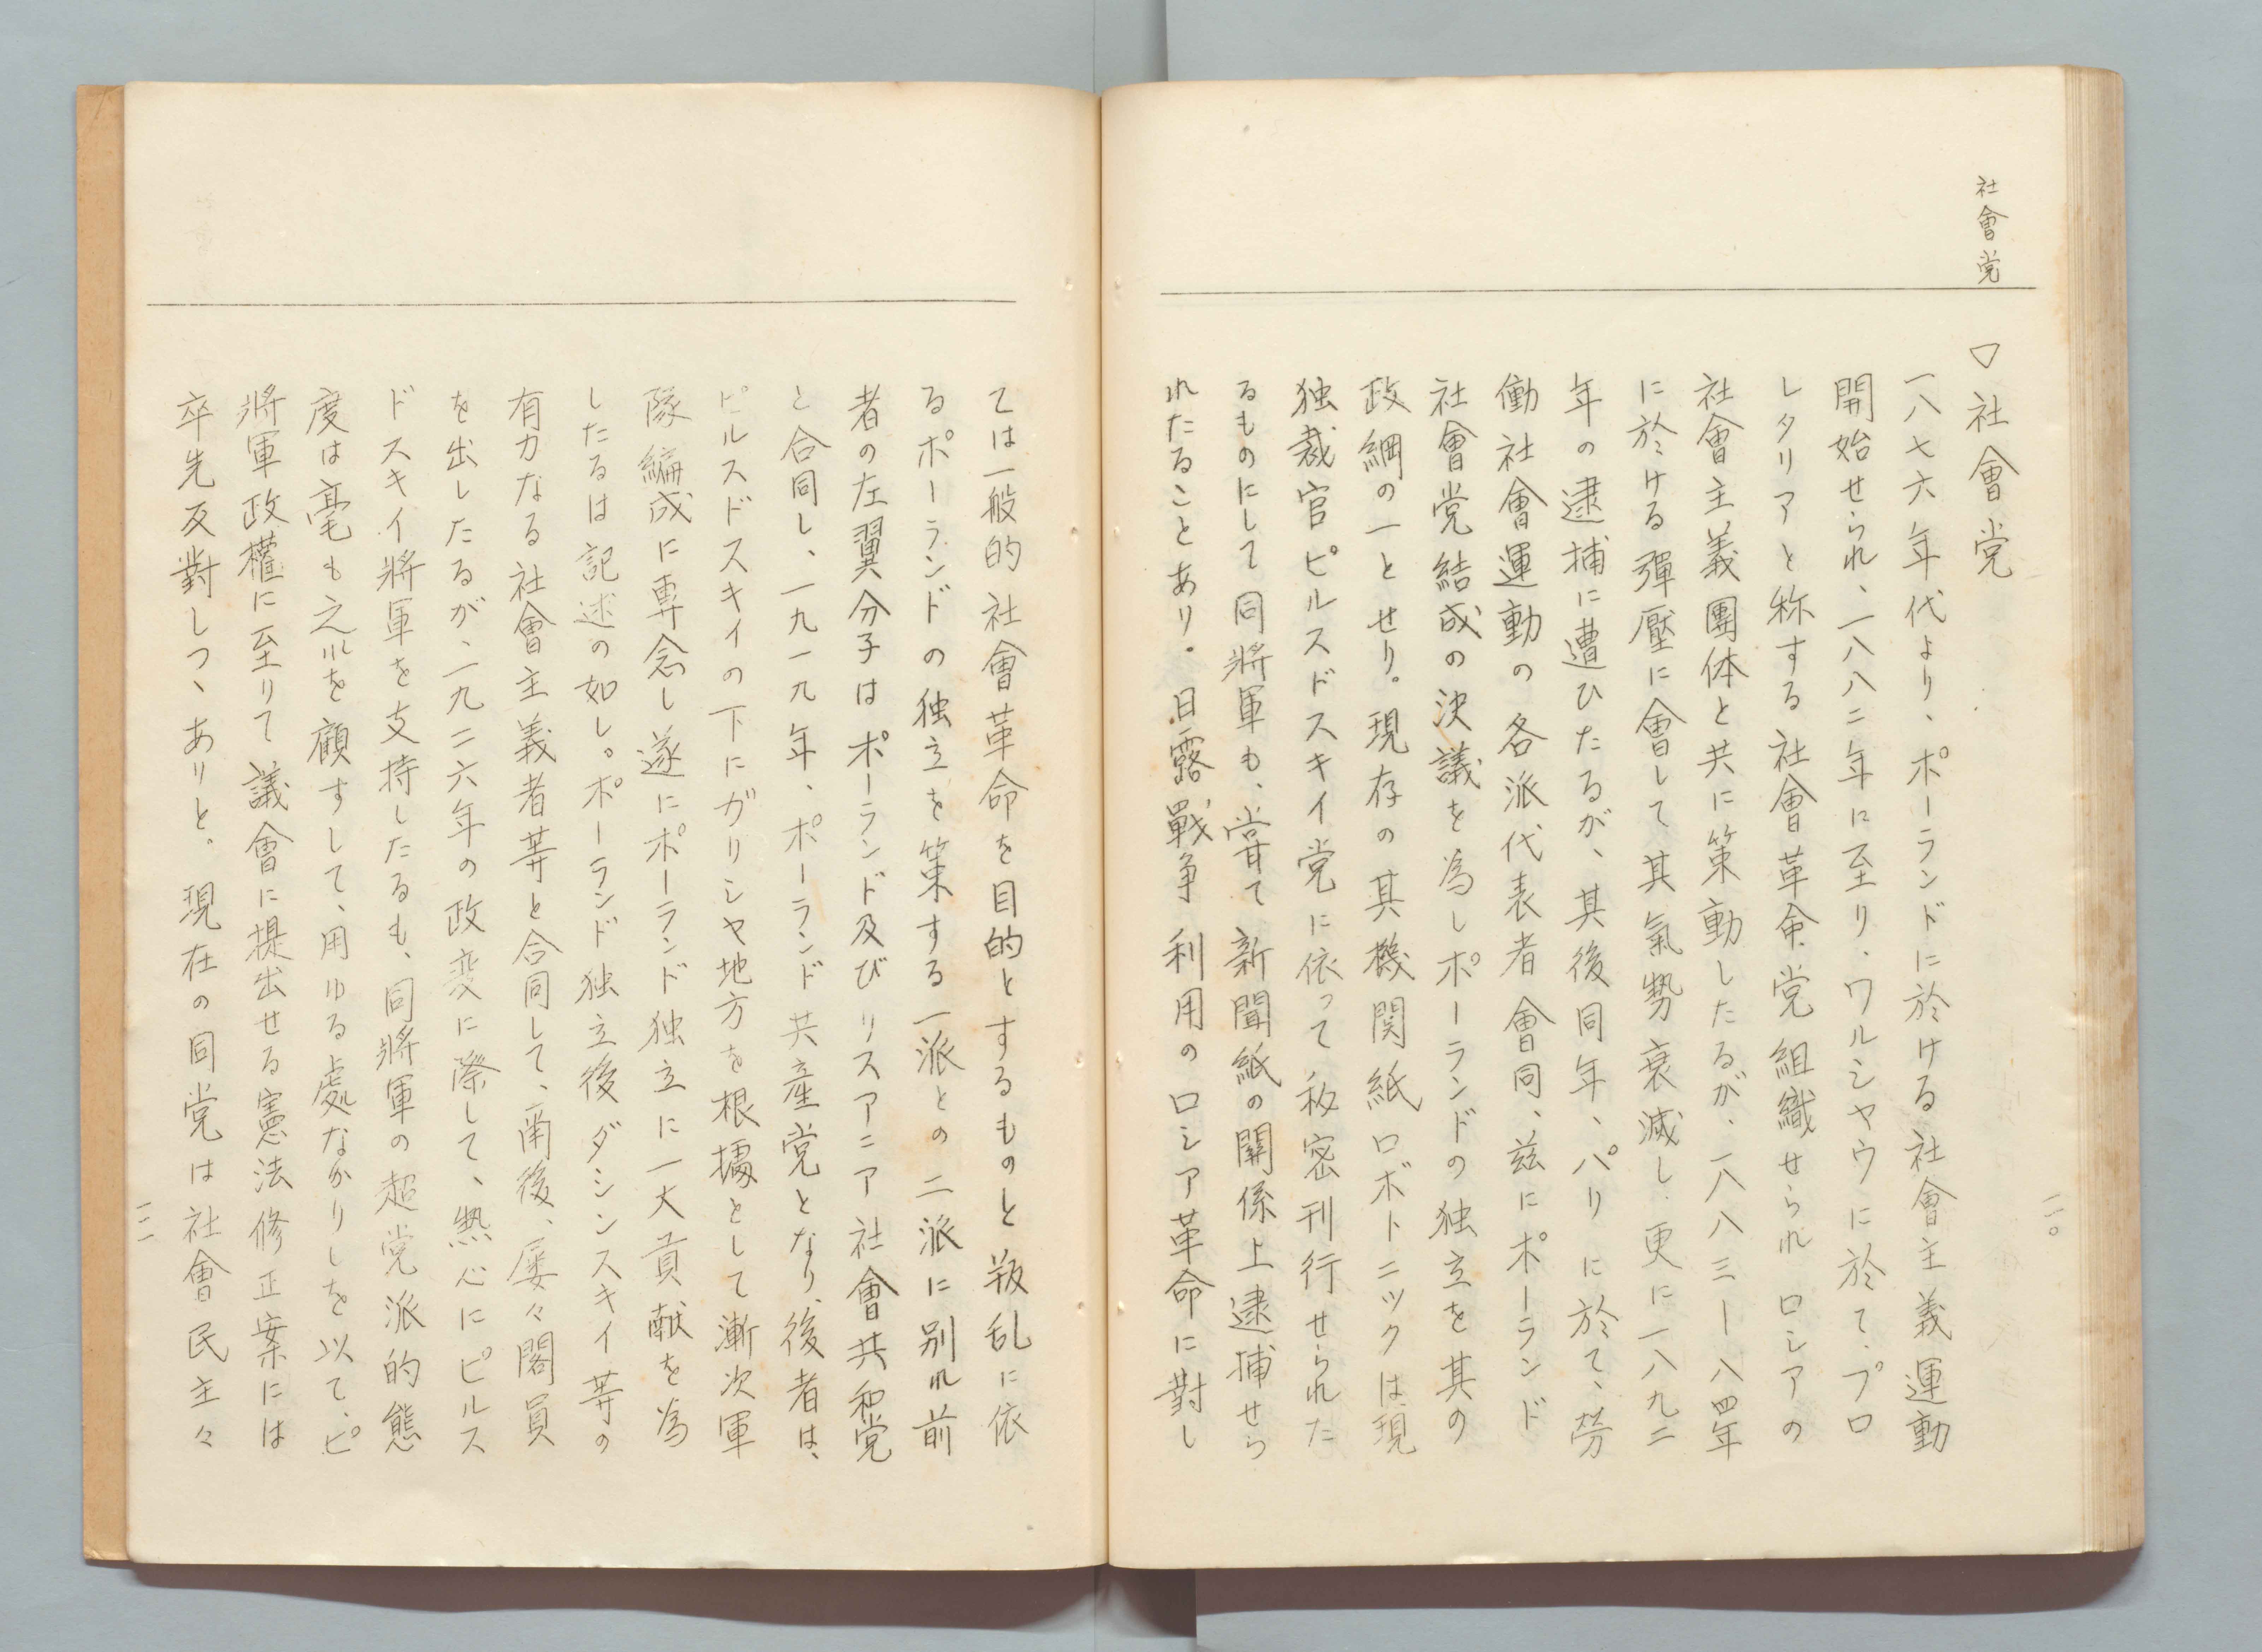 社會党
▽社會党
一八七六年代より、ポーランドに於ける社會主義運動
開始せられ、一八八二年に至り、ワルシャウに於て、プロ
レタリアと称する社會革命党組織せられロシアの
社會主義團体と共に策動したるが、一八八三ー八四年
に於ける彈壓に會して其氣勢衰減し更に一八九二
年の逮捕に遭ひたるが、其後同年、パリに於て、労
働社會運動の各派代表者會同、茲にポーランド
社會党結成の決議を為しポーランドの独立を其の
政綱の一とせり。現存の其機関紙ロボトニックは現
独裁官ピルスドスキイ党に依って秘密刊行せられた
るものにして同將軍も、嘗て新聞紙の関係上逮捕せら
れたることあり。日露戰争利用のロシア革命に對し
一一〇
ては一般的社會革命を目的とするものと叛乱に依
るポーランドの独立を策する一派との二派に別れ前
者の左翼分子はポーランド及びリスアニア社會共和党
と合同し、一九一九年、ポーランド共産党となり、後者は、
ピルスドスキイの下にガリシヤ地方を根據として漸次軍
隊編成に専念し遂にポーランド独立に一大貢献を為
したるは記述の如し。ポーランド独立後ダシンスキイ等の
有力なる社會主義者等と合同して、爾後、屡々閣員
を出したるが、一九二六年の政変に際して、熱心にピルス
ドスキイ將軍を支持したるも、同將軍の超党派的態
度は毫も之れを顧すして、用ゆる處なかりしを以て、ピ
將軍政權に至りて議會に提出せる憲法修正案には
卒先反對しつゝありと。現在の同党は社會民主々
一一一